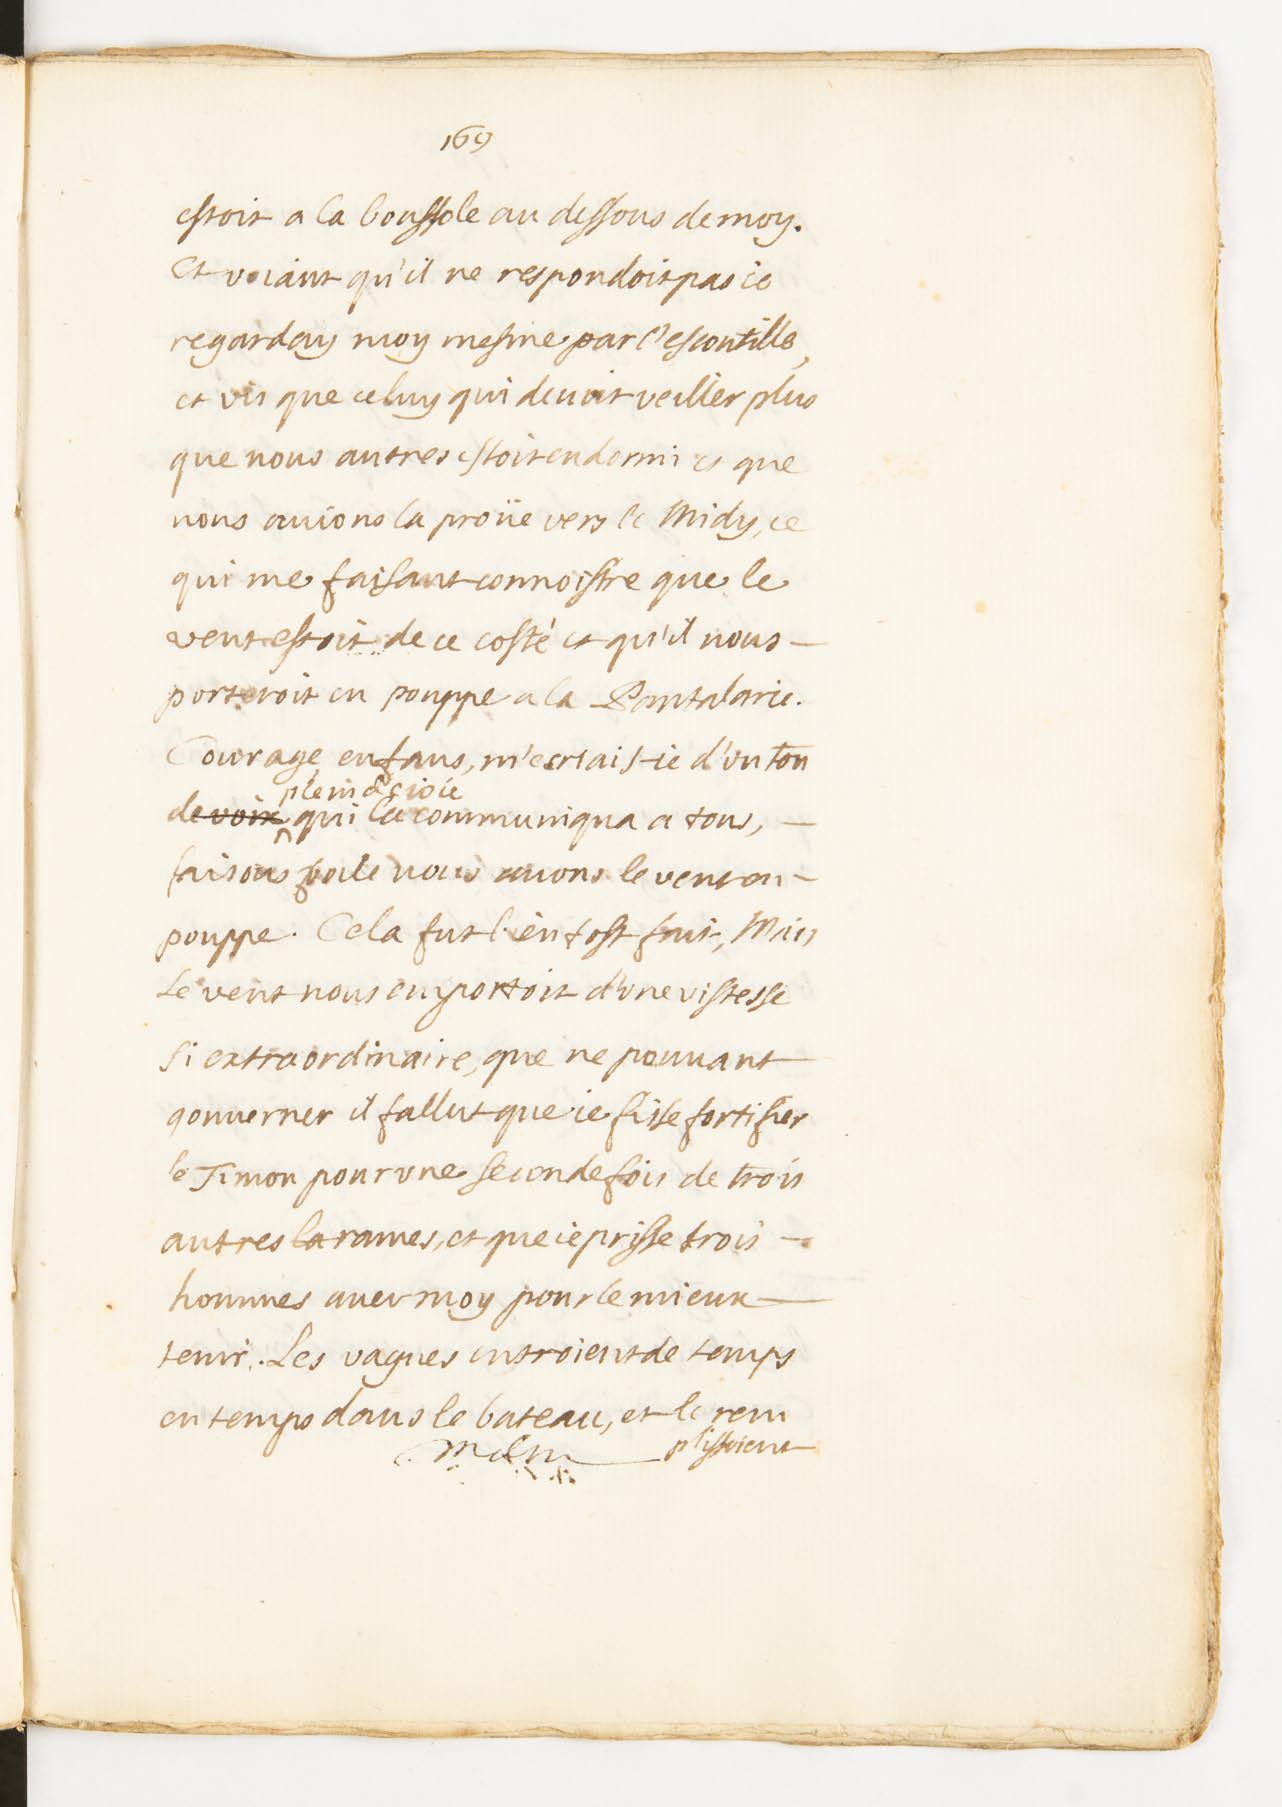 169
estoit a la boussole au dessous de moy.
Et voiant qu'il ne respondoit pas ie
regarday moy mesme par l'escoutille,
et vis que celuy qui deuoit veiller plus
que nous autres estoit endormi et que
nous auions la proüe vers le Midy, ce
qui me faisant connoistre que le
vent estoit de ce costé et qu'il nous
porteroit en pouppe a la Pantalarie.
Courage enfans, m'ecriais-ie d'vn ton
plein de ioie
de voix qui la communiqua a tous,
faisons voile nous auons le vent en
pouppe. Cela fut bientost fait, Mais
Le vent nous emportoit d'vne vistesse
si extraordinaire, que ne pouuant
gouuerner il fallut que ie fisse fortifier
le Timon pour vne seconde fois de trois
autres rames, et que ie prisse trois
hommes auec moy pour le mieux
tenir. Les vagues entroient de temps
en temps dans le bateau, et le rem
plissoient